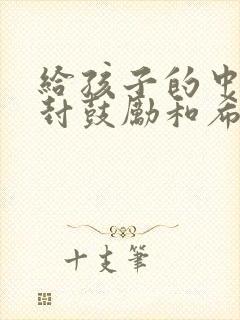 給孩子的
封鼓勵和希
十支筆